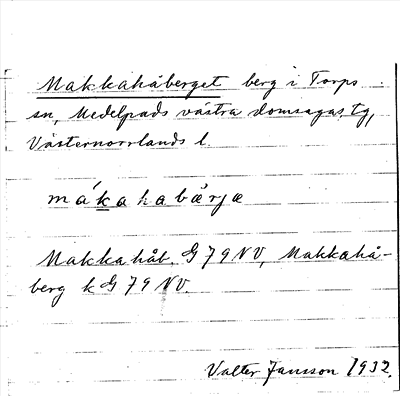 Makkahåberget berg i Torps
sn, Medelpads västra domsagas tg,
Västernorrlands l.
mákahabærjæ
Makkahåb. G 79 NV, Makkahå-
berg k G 79 NV.
Valter Jansson 1932.